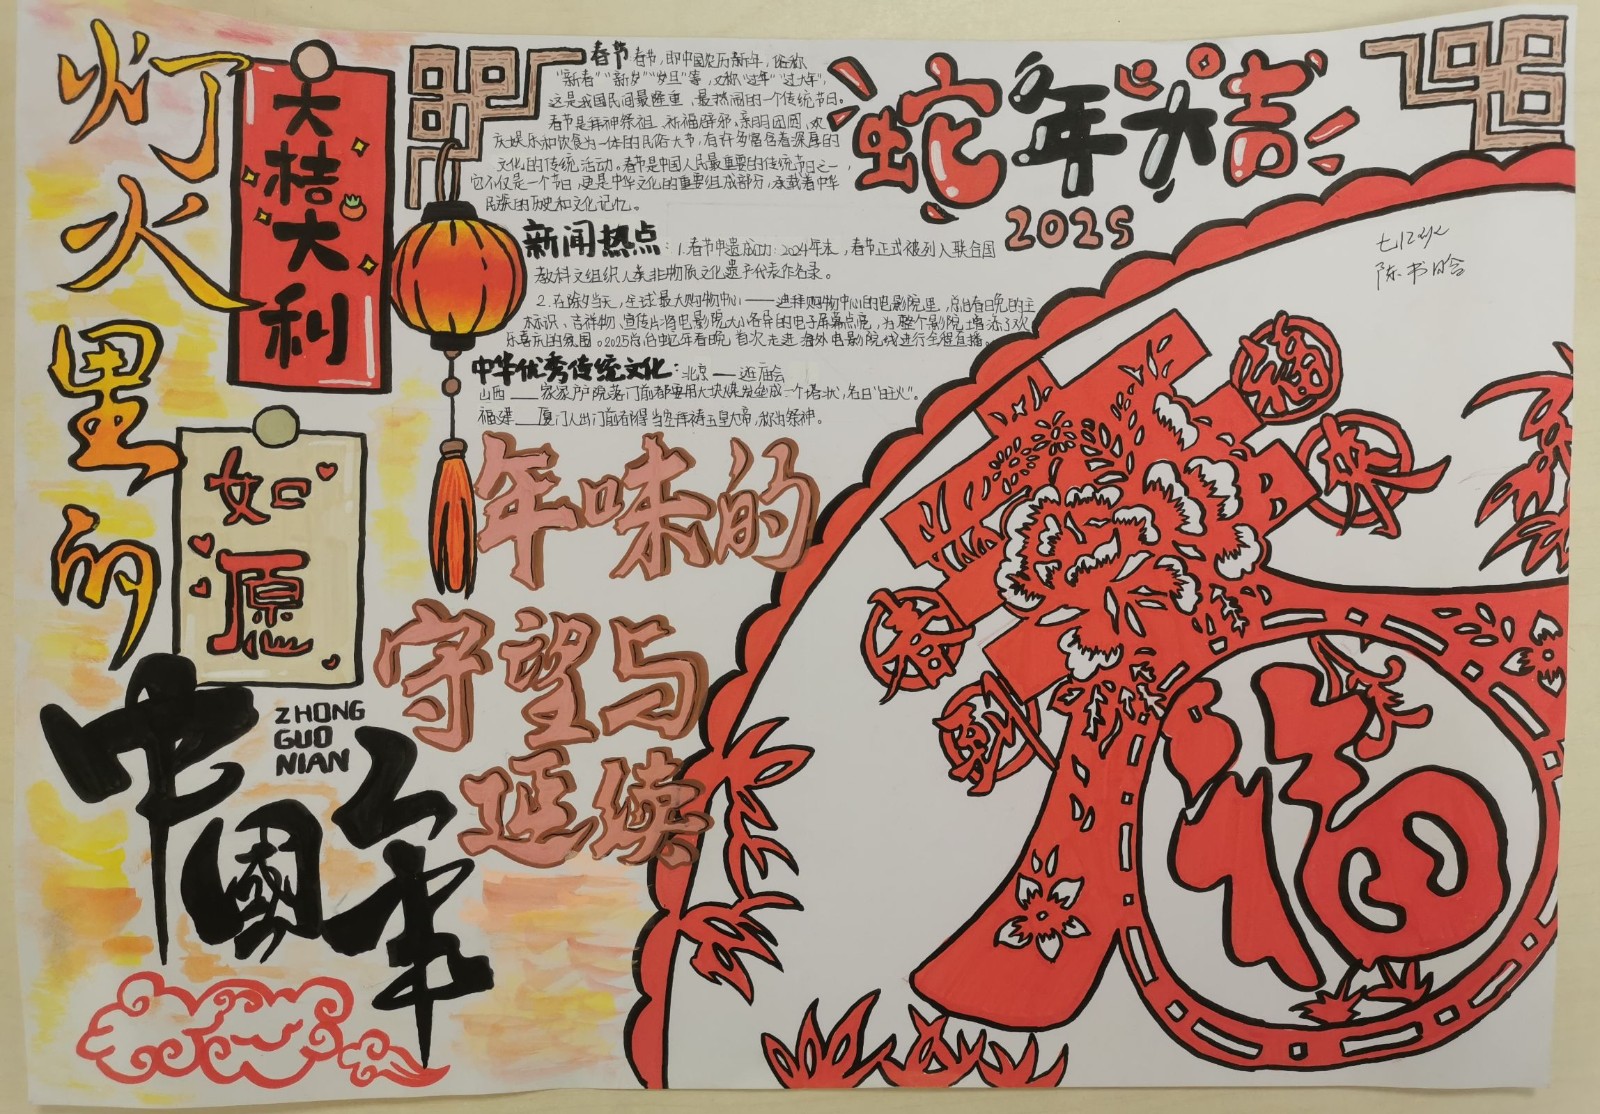 灯火里的
大桔大利
如愿
中國年
ZHONG
GUO
NIAN
春节 春节，即中国农历新年，俗称
“新春”“新岁”“岁旦”等，又称“过年”“过大年”，
这是我国民间最隆重、最热闹的一个传统节日。
春节是拜神祭祖、祈福辟邪、亲朋团圆、欢
庆娱乐和饮食为一体的民俗大节，有许多富含着深厚的
文化的传统活动。春节是中国人民最重要的传统节日之一，
它不仅是一个节日，更是中华文化的重要组成部分，承载着中华
民族的历史和文化记忆。
新闻热点：1.春节申遗成功：2024年末，春节正式被列入联合国
教科文组织人类非物质文化遗产代表作名录。
2.在除夕当天，全球最大购物中心——迪拜购物中心的电影院里，总台春晚的主
标识、吉祥物、宣传片将电影院大小各异的电子屏幕点亮，为整个影院增添了欢
乐喜庆的氛围。2025总台蛇年春晚首次走进海外电影院线进行全程直播。
中华优秀传统文化：北京——逛庙会
山西——家家户户院落门前都要用大块煤炭垒成一个塔状，名曰“旺火”。
福建——厦门人出门前有得当空拜祷玉皇大帝，称为祭神。
年味的
守望与
延续
蛇年大吉
2025
陈书晗
福
来
春
到
福